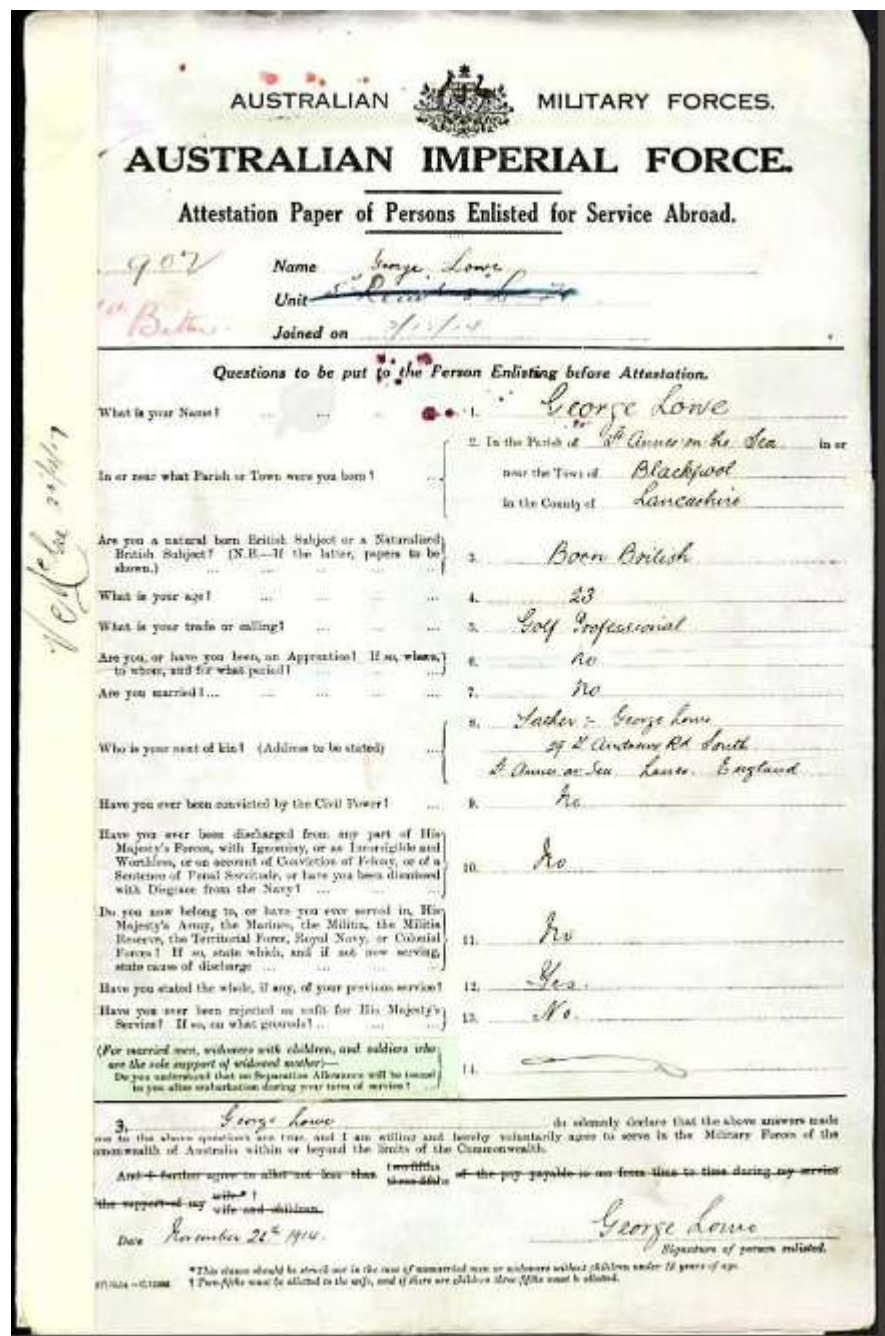 AUSTRALIAN MILITARY FORCES.
AUSTRALIAN IMPERIAL FORCE.
Attestation Paper of Persons Enlisted for Service Abroad.
902
Name George Lowe
Unit
Joined on
Questions to be put to the Person Enlisting before Attestation.
What is your Name? ... ... ... 1. George Lowe
In or near what Parish or Town were you born? ... 2. In the Parish of St Annes on the Sea in or
near the Town of Blackpool
in the County of Lancashire
Are you a natural born British Subject or a Naturalised
British Subject? (N.B.—If the latter, papers to be
shown.) ... ... ... 3. Born British
What is your age? ... ... ... 4. 23
What is your trade or calling? ... ... 5. Golf Professional
Are you, or have you been, an Apprentice? If so, where,
to whom, and for what period? ... ... 6. no
Are you married?... ... ... ... 7. no
Who is your next of kin? (Address to be stated) ... 8. Father :- George Lowe
29 St Andrews Rd South
St Annes on Sea Lancs. England
Have you ever been convicted by the Civil Power? ... 9. No
Have you ever been discharged from any part of His
Majesty's Forces, with Ignominy, or as Incorrigible and
Worthless, or on account of Conviction of Felony, or of a
Sentence of Penal Servitude, or have you been dismissed
with Disgrace from the Navy? ... ... 10. No
Do you now belong to, or have you ever served in, His
Majesty's Army, the Marines, the Militia, the Militia
Reserve, the Territorial Force, Royal Navy, or Colonial
Forces? If so, state which, and if not now serving,
state cause of discharge ... ... ... 11. No
Have you stated the whole, if any, of your previous service? 12. Yes.
Have you ever been rejected as unfit for His Majesty's
Service? If so, on what grounds? ... ... 13. No.
(For married men, widowers with children, and soldiers who
are the sole support of widowed mother)—
Do you understand that no Separation Allowance will be issued
to you after embarkation during your term of service? 14.
3. George Lowe do solemnly declare that the above answers made
me to the above questions are true, and I am willing and hereby voluntarily agree to serve in the Military Forces of the
monwealth of Australia within or beyond the limits of the Commonwealth.
And I further agree to allot not less than two-fifths three-fifths of the pay payable to me from time to time during my service
the support of my wife* †
wife and children.
Date November 1914. George Lowe
Signature of person enlisted.
*This clause should be struck out in the case of unmarried men or widowers without children under 18 years of age.
† Two-fifths must be allotted to the wife, and if there are children three-fifths must be allotted.